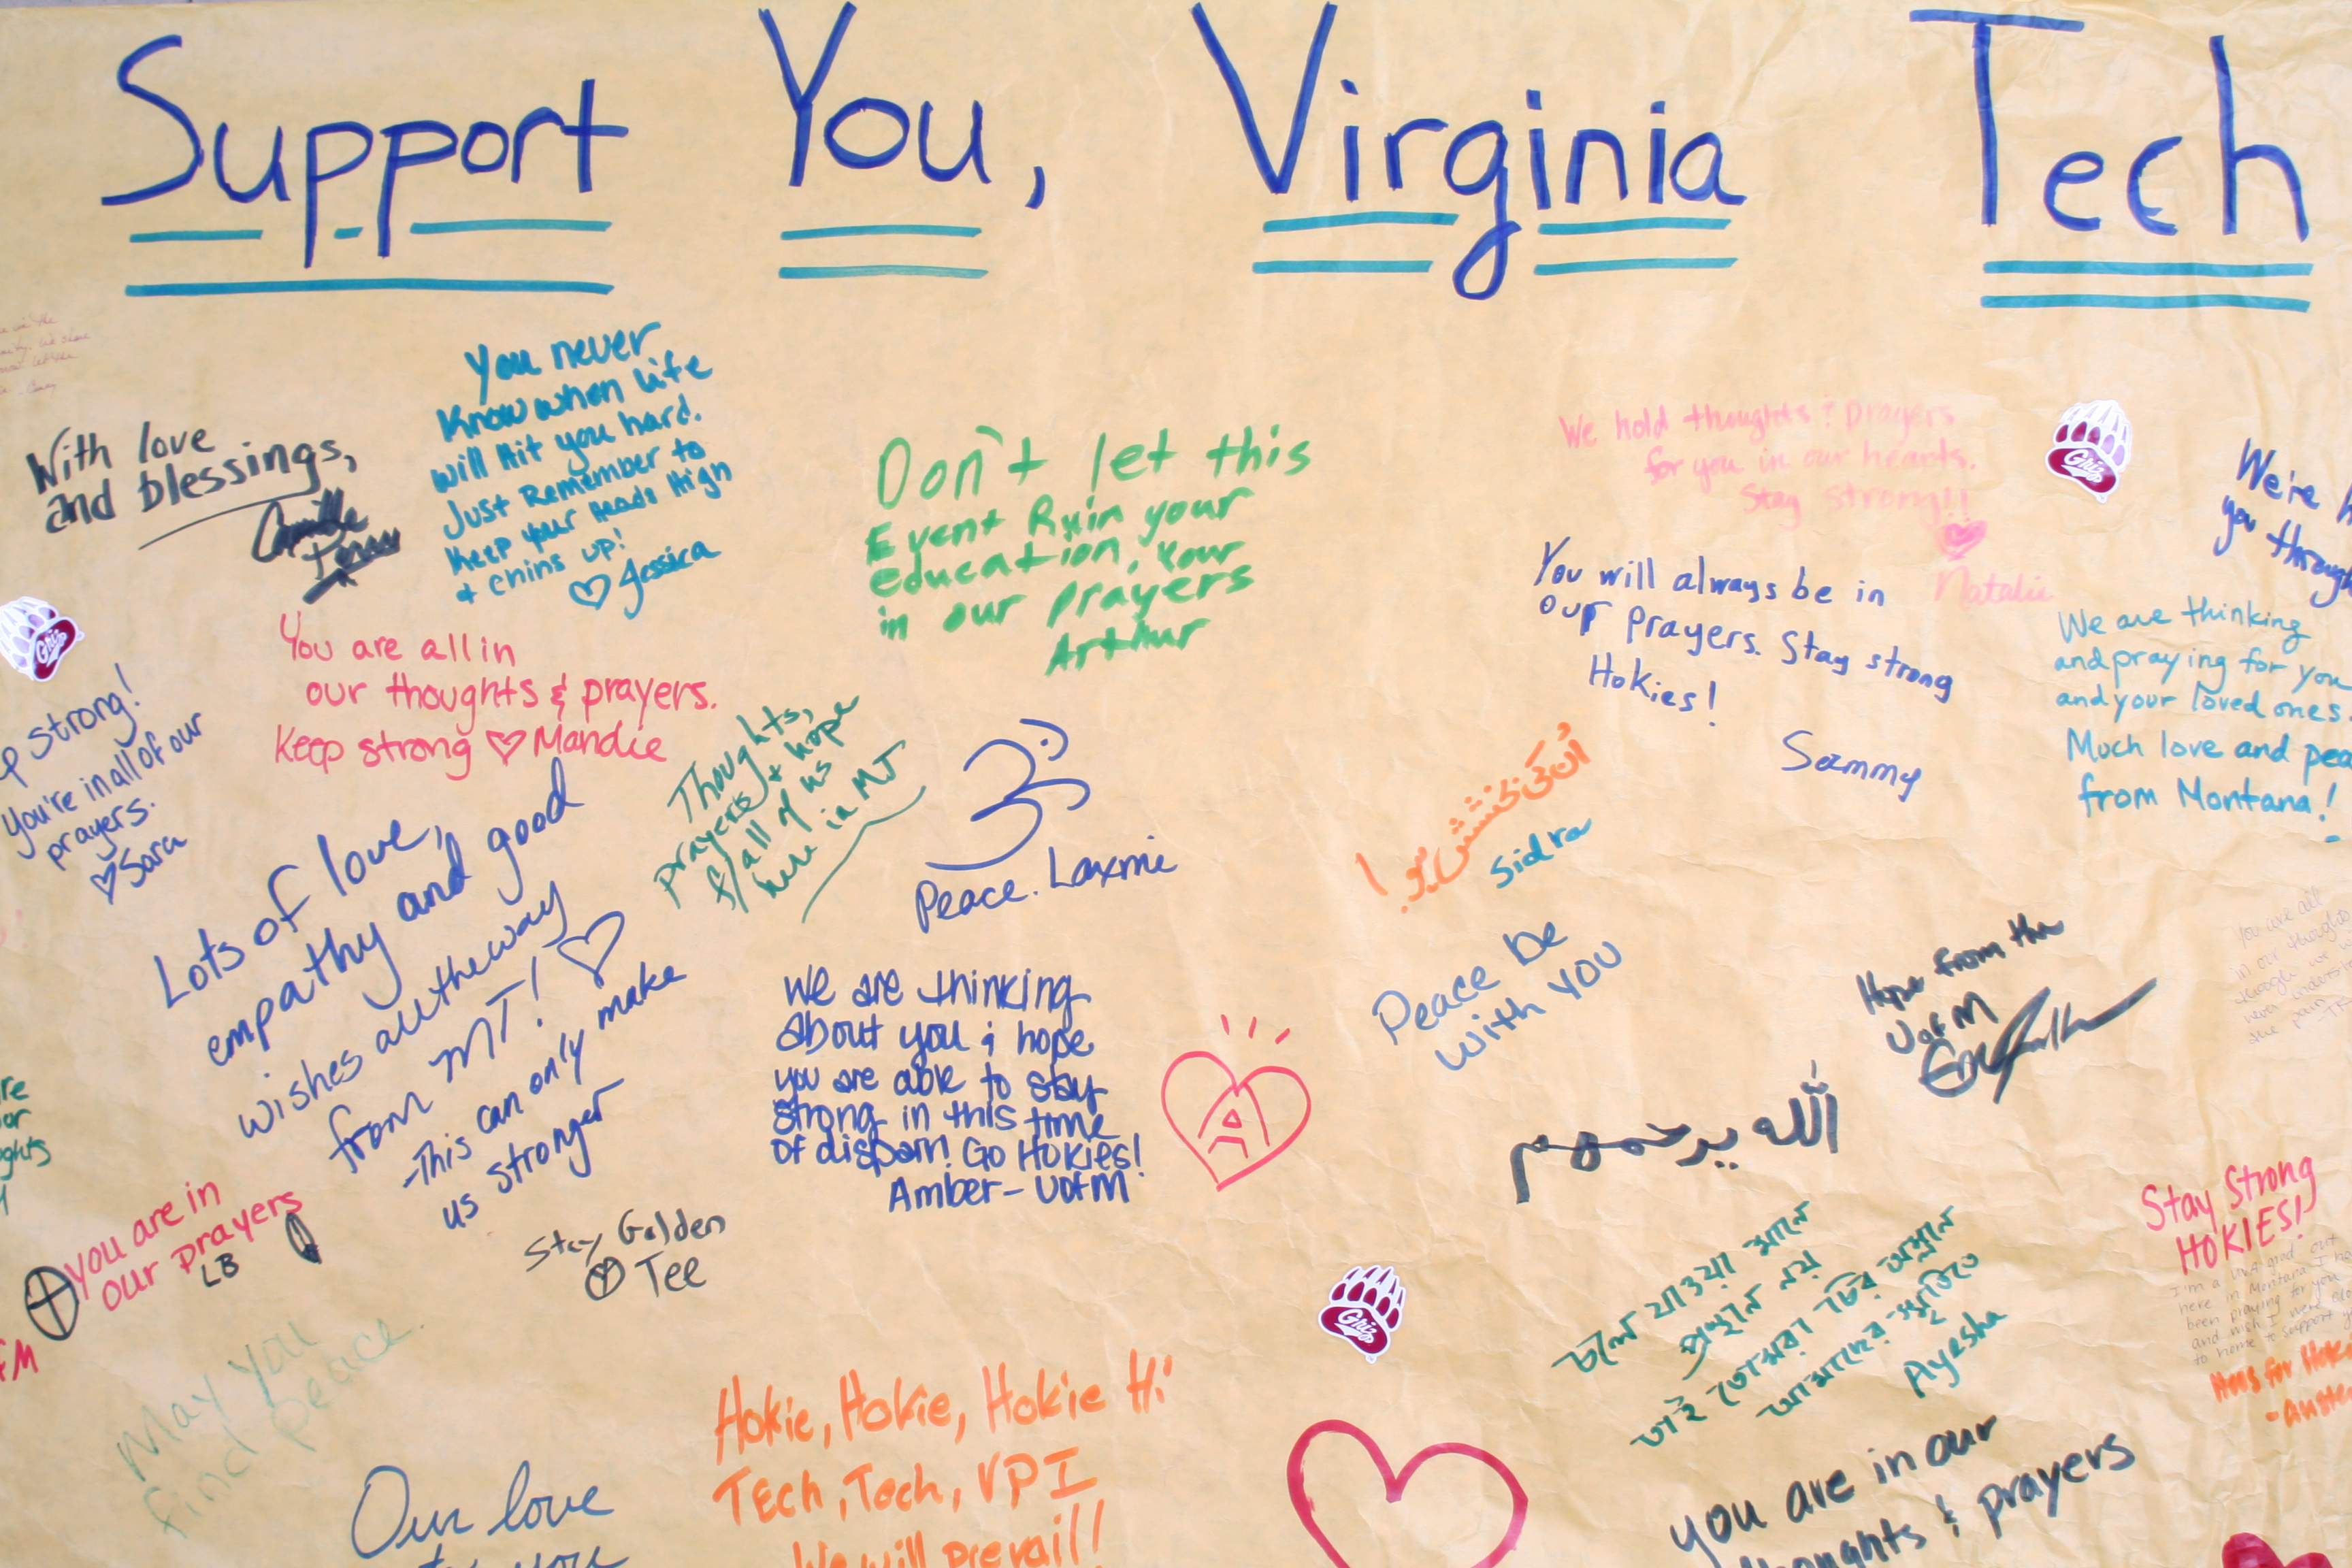 Support You, Virginia Tech
With love
and blessings,
You never
Know when life
will hit you hard.
Just Remember to
Keep your heads High
& chins up!
♡ Jessica
Don't let this
Event Ruin your
education, Your
in our prayers
Arthur
We hold thoughts & prayers
for you in our hearts.
Stay strong!!
Natalie
Griz
We're
you through
You will always be in
our Prayers. Stay strong
Hokies!
Sammy
We are thinking
and praying for you
and your loved ones.
Much love and
from Montana!
Griz
You are all in
our thoughts & prayers.
Keep strong ♡ Mandie
strong!
You're in all of our
prayers.
♡ Sara
Thoughts,
prayers + hope
f/ all of us
here in MT
ॐ
Peace. Laxmie
اُن کی بخشش ہو!
Sidra
Lots of love,
empathy and good
wishes all the way
from MT! ♡
-This can only make
us stronger
We are thinking
about you & hope
you are able to stay
strong in this time
of dispair! Go Hokies!
Amber - UofM
Peace be
with you
Hope from the
UofM
الله يرحمهم
you are in
our prayers
LB
Stay Golden
Tee
Griz
চলে যাওয়া মানে
প্রস্থান নয়
তাই তোমরা চির অম্লান
আমাদের স্মৃতিতে
Ayesha
Stay Strong
HOKIES!
I'm a
here in Montana. I
been praying for you
and wish I were
to home to support
May you
find peace.
Hokie, Hokie, Hokie Hi
Tech, Tech, VPI
We will prevail!
Our love
to you
you are in our
thoughts & prayers